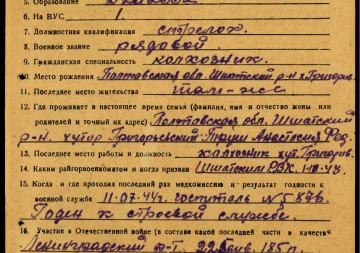 5. Образование
6. На ВУС 1.
7. Должностная квалификация стрелок
8. Военное звание рядовой
9. Гражданская специальность колхозник.
10. Место рождения Полтавская обл. Шишатский р-н х. Григорив.
11. Последнее место жительства там-же
12. Где проживает в настоящее время семья (фамилия, имя и отчество жены или
родителей и точный их адрес) Полтавская обл. Шишатский
р-н. хутор Григорьевский Анастасия Фед.
13. Последнее место работы и должность колхозник хут. Григорив.
14. Каким райгорвоенкоматом и когда призван Шишатским РВК. 1-10-43.
15. Когда и где проходил последний раз медкомиссию и результат годности к
военной службе 11.07.44г. госпиталь №
Годен к строевой службе.
16. Участие в Отечественной войне (в составе какой последней части и в качестве
Ленинградский ф-т. 185 п.